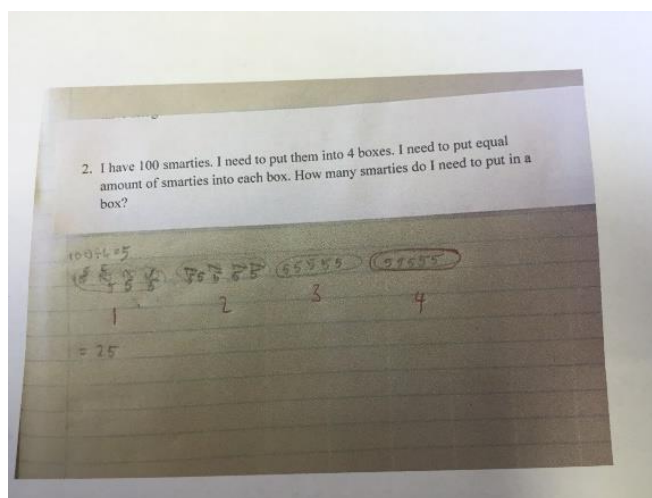 2. I have 100 smarties. I need to put them into 4 boxes. I need to put equal
amount of smarties into each box. How many smarties do I need to put in a
box?
55555 55555
1 2 3 4
= 25